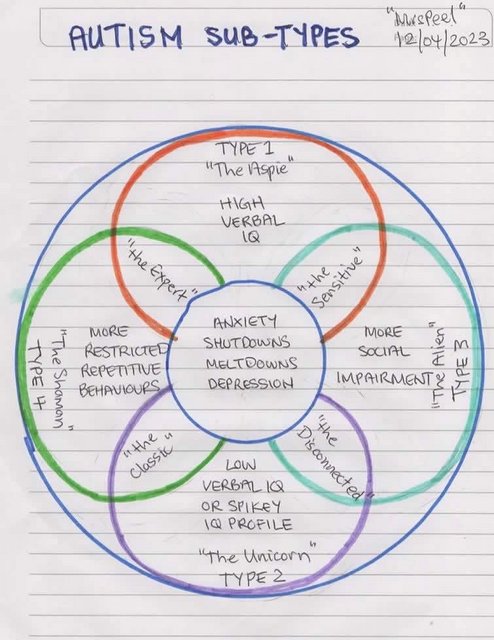 "MrsPeel"
12/04/2023
AUTISM SUB-TYPES
TYPE 1
"The Aspie"
HIGH
VERBAL
IQ
"the Expert"
"the
Sensitive"
ANXIETY
SHUTDOWNS
MELTDOWNS
DEPRESSION
"The Shaman"
TYPE 4
MORE
RESTRICTED
REPETITIVE
BEHAVIOURS
MORE
SOCIAL
IMPAIRMENT
"The Alien"
TYPE 3
"the
Classic"
"the
Disconnected"
LOW
VERBAL IQ
OR SPIKEY
IQ PROFILE
"The Unicorn"
TYPE 2